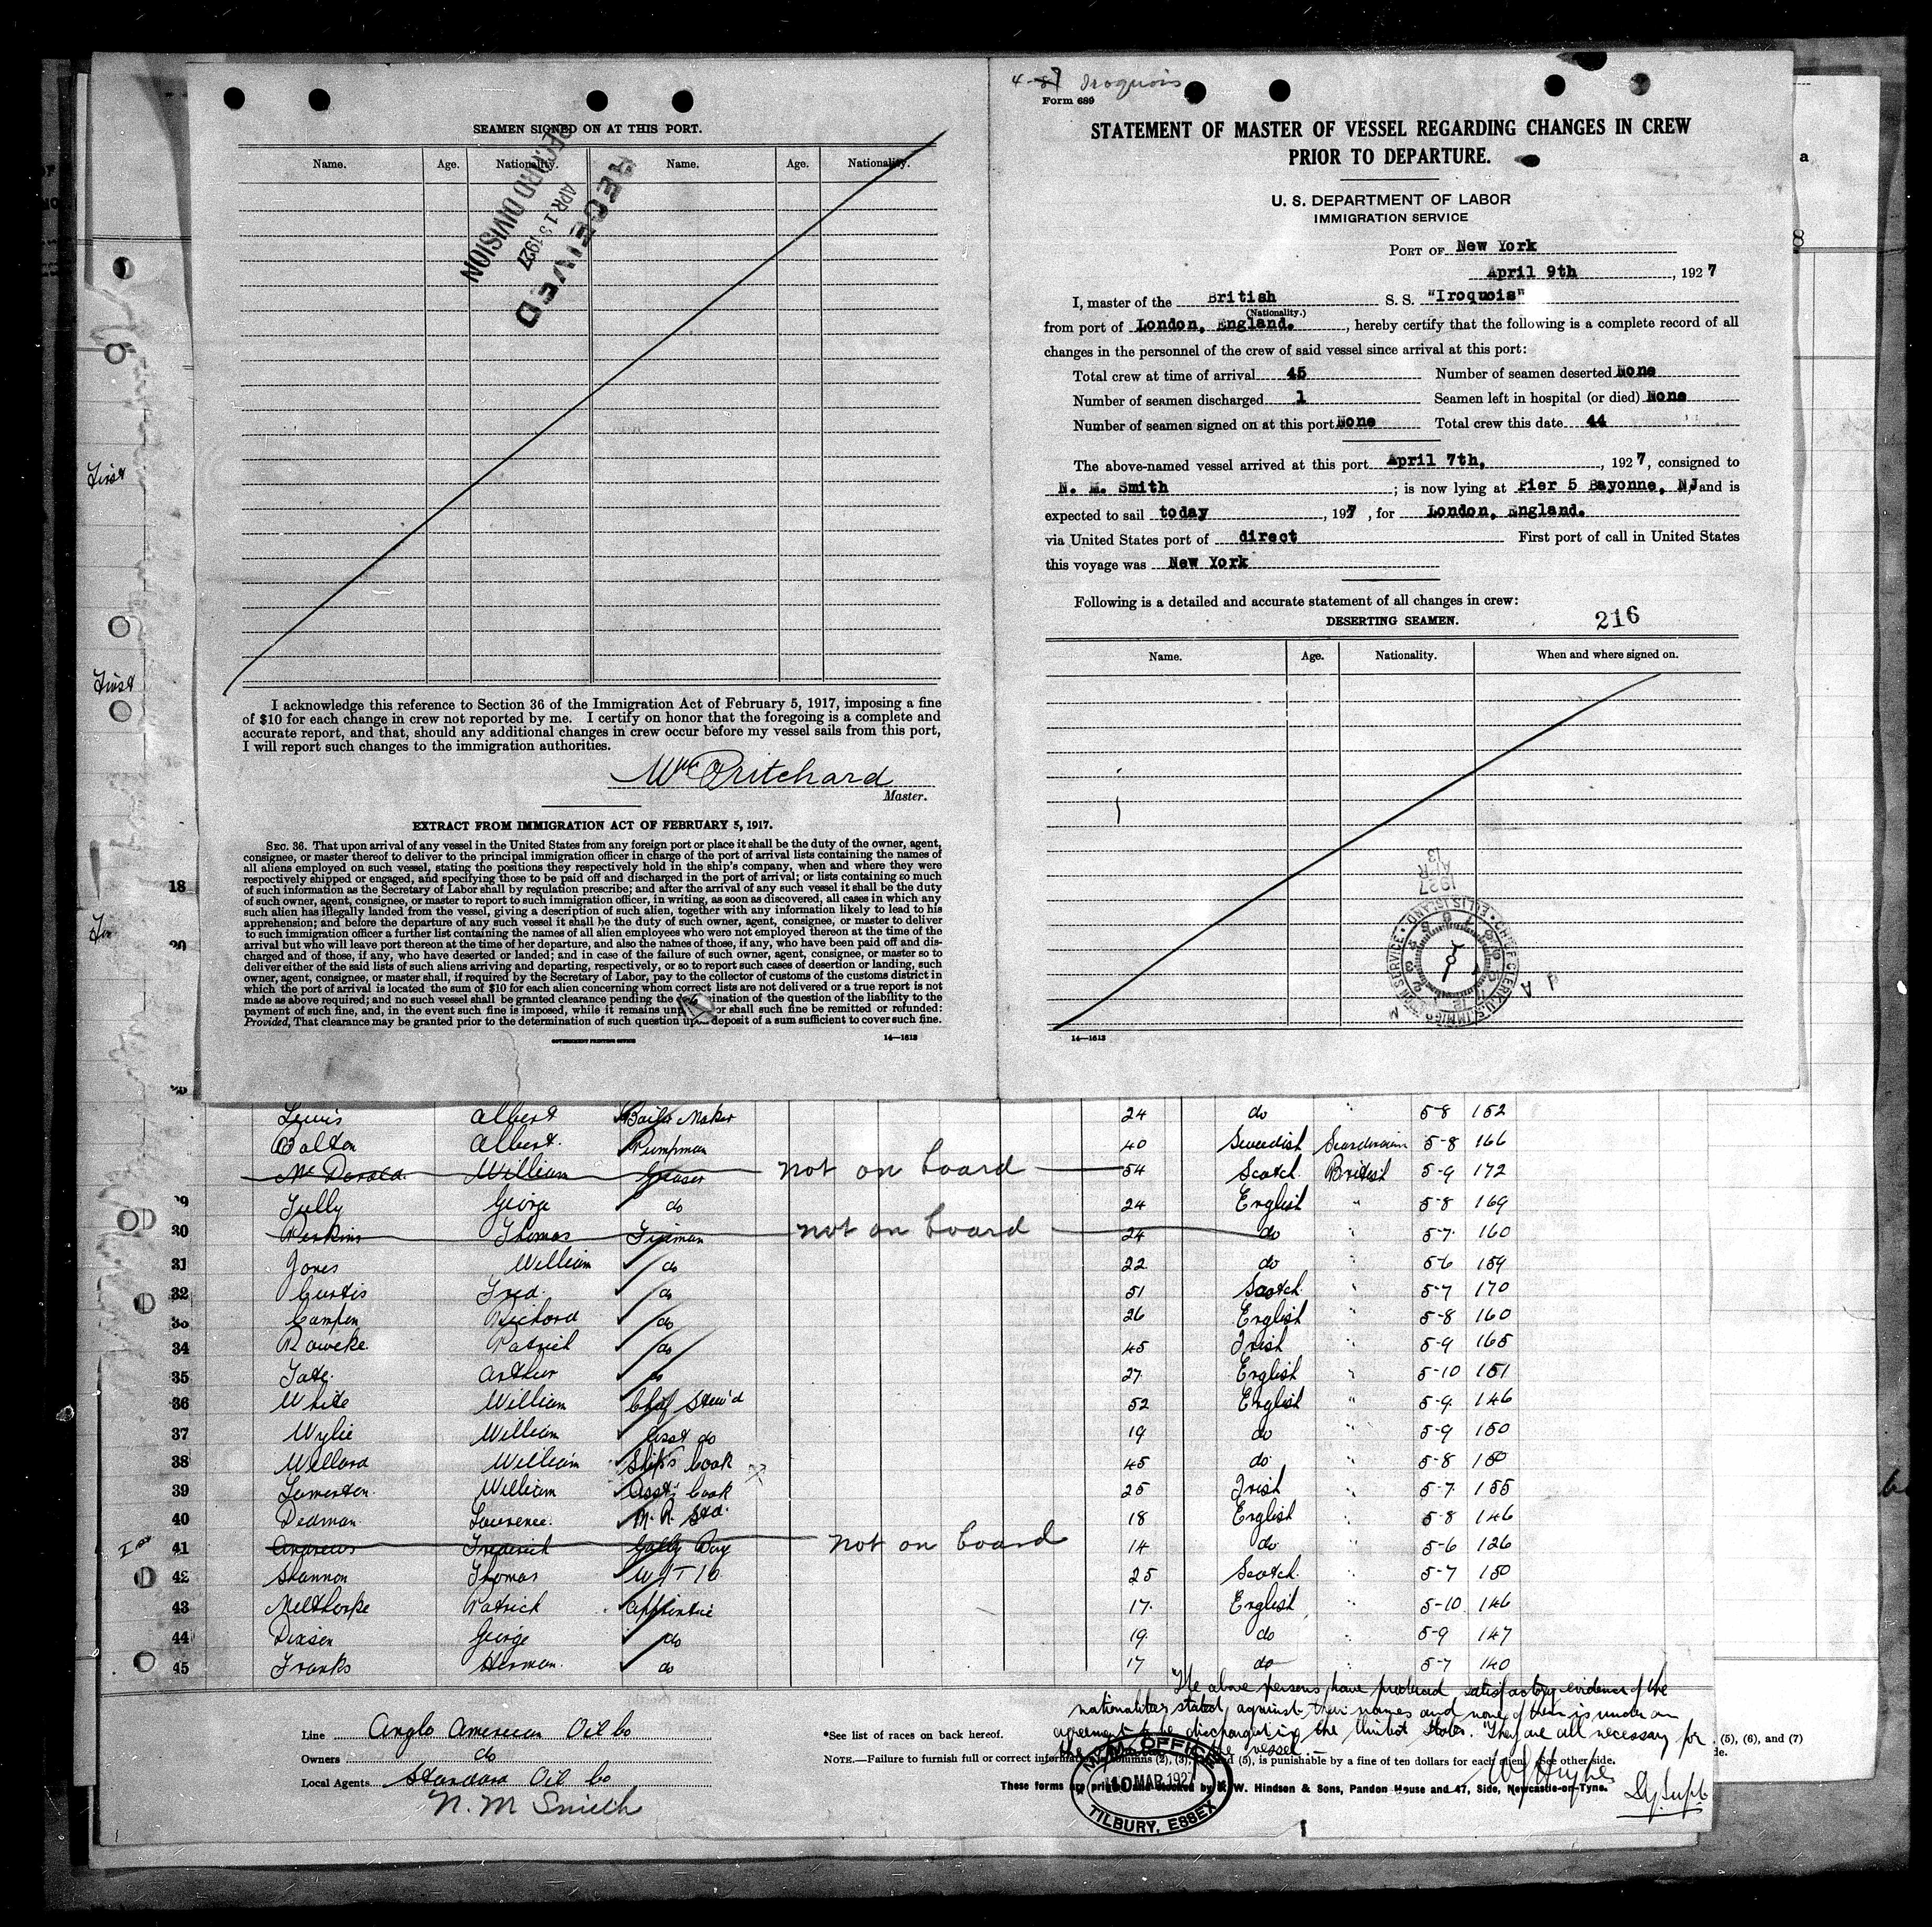 SEAMEN SIGNED ON AT THIS PORT.
Name. Age. Nationality. Name. Age. Nationality.
RECEIVED
APR 13 1927
RECORD DIVISION
I acknowledge this reference to Section 36 of the Immigration Act of February 5, 1917, imposing a fine
of $10 for each change in crew not reported by me. I certify on honor that the foregoing is a complete and
accurate report, and that, should any additional changes in crew occur before my vessel sails from this port,
I will report such changes to the immigration authorities.
Wm Pritchard
Master.
EXTRACT FROM IMMIGRATION ACT OF FEBRUARY 5, 1917.
SEC. 36. That upon arrival of any vessel in the United States from any foreign port or place it shall be the duty of the owner, agent,
consignee, or master thereof to deliver to the principal immigration officer in charge of the port of arrival lists containing the names of
all aliens employed on such vessel, stating the positions they respectively hold in the ship's company, when and where they were
respectively shipped or engaged, and specifying those to be paid off and discharged in the port of arrival; or lists containing so much
of such information as the Secretary of Labor shall by regulation prescribe; and after the arrival of any such vessel it shall be the duty
of such owner, agent, consignee, or master to report to such immigration officer, in writing, as soon as discovered, all cases in which any
such alien has illegally landed from the vessel, giving a description of such alien, together with any information likely to lead to his
apprehension; and before the departure of any such vessel it shall be the duty of such owner, agent, consignee, or master to deliver
to such immigration officer a further list containing the names of all alien employees who were not employed thereon at the time of the
arrival but who will leave port thereon at the time of her departure, and also the names of those, if any, who have been paid off and dis-
charged and of those, if any, who have deserted or landed; and in case of the failure of such owner, agent, consignee, or master so to
deliver either of the said lists of such aliens arriving and departing, respectively, or so to report such cases of desertion or landing, such
owner, agent, consignee, or master shall, if required by the Secretary of Labor, pay to the collector of customs of the customs district in
which the port of arrival is located the sum of $10 for each alien concerning whom correct lists are not delivered or a true report is not
made as above required; and no such vessel shall be granted clearance pending the ination of the question of the liability to the
payment of such fine, and, in the event such fine is imposed, while it remains unp or shall such fine be remitted or refunded:
Provided, That clearance may be granted prior to the determination of such question upon deposit of a sum sufficient to cover such fine.
GOVERNMENT PRINTING OFFICE 14—1613
Iroquois
Form 689
STATEMENT OF MASTER OF VESSEL REGARDING CHANGES IN CREW
PRIOR TO DEPARTURE.
U. S. DEPARTMENT OF LABOR
IMMIGRATION SERVICE
PORT OF New York
April 9th, 1927
I, master of the British S. S. "Iroquois"
(Nationality.)
from port of London, England., hereby certify that the following is a complete record of all
changes in the personnel of the crew of said vessel since arrival at this port:
Total crew at time of arrival 45 Number of seamen deserted None
Number of seamen discharged 1 Seamen left in hospital (or died) None
Number of seamen signed on at this port None Total crew this date 44
The above-named vessel arrived at this port April 7th, , 1927, consigned to
N. M. Smith ; is now lying at Pier 5 Bayonne, NJ and is
expected to sail today , 197 , for London, England.
via United States port of direct First port of call in United States
this voyage was New York
Following is a detailed and accurate statement of all changes in crew:
216
DESERTING SEAMEN.
Name. Age. Nationality. When and where signed on.
1927 APR 13
CHIEF CLERK U.S. IMMIGRATION SERVICE • ELLIS ISLAND
14—1613
First
First
18
20
Lewis Albert Boiler Maker 24 do " 5-8 152
Balton Albert. Pumpman 40 Swedish Scandinavian 5-8 166
Mc Donald William Greaser not on board 54 Scotch British 5-9 172
29 Tully George do 24 English " 5-8 169
30 Perkins Thomas Fireman not on board 24 do " 5-7 160
31 Jones William do 22 do " 5-6 159
32 Curtis Fred. do 51 Scotch " 5-7 170
33 Campen Richard do 26 English " 5-8 160
34 Patrick do 45 Irish " 5-9 165
35 Tate Arthur do 27 English " 5-10 151
36 White William Chief Stew'd 52 English " 5-9 146
37 Wylie William Asst do 19 do " 5-9 150
38 Willard William Ship's Cook 45 do " 5-8 150
39 William Asst Cook 25 Irish " 5-7 155
40 Dedman Lawrence. M. R. Std. 18 English " 5-8 146
41 Andrews Frederick Galley Boy not on board 14 do " 5-6 126
42 Shannon Thomas W/T 25 Scotch " 5-7 150
43 Melthorpe Patrick Apprentice 17 English " 5-10 146
44 Dixson George do 19 do " 5-9 147
45 Franks Herman. do 17 do " 5-7 140
The above persons have produced satisfactory evidence of the
nationalities stated against their names and none of them is under an
agreement to be discharged in the United States. They are all necessary for
the vessel.
W Hughes
Dy. Supt.
Line Anglo American Oil Co
Owners do
Local Agents Standard Oil Co
N. M Smith
*See list of races on back hereof.
(5), (6), and (7)
NOTE.—Failure to furnish full or correct information columns (2), (3), and (5), is punishable by a fine of ten dollars for each alien. See other side.
These forms are printed and stocked by W. Hindson & Sons, Pandon House and 47, Side, Newcastle-on-Tyne.
M.M. OFFICE
10 MAR 1927
TILBURY, ESSEX